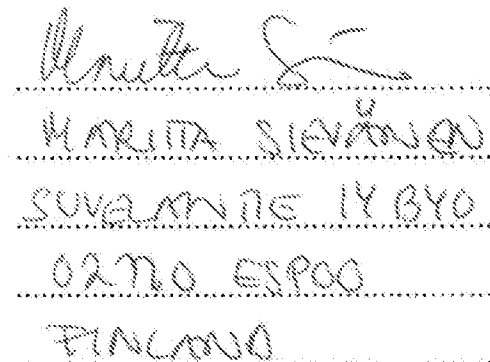 MARITTA SIEVÄNEN
SUVELANTIE 14 B40
02770 ESPOO
FINLAND